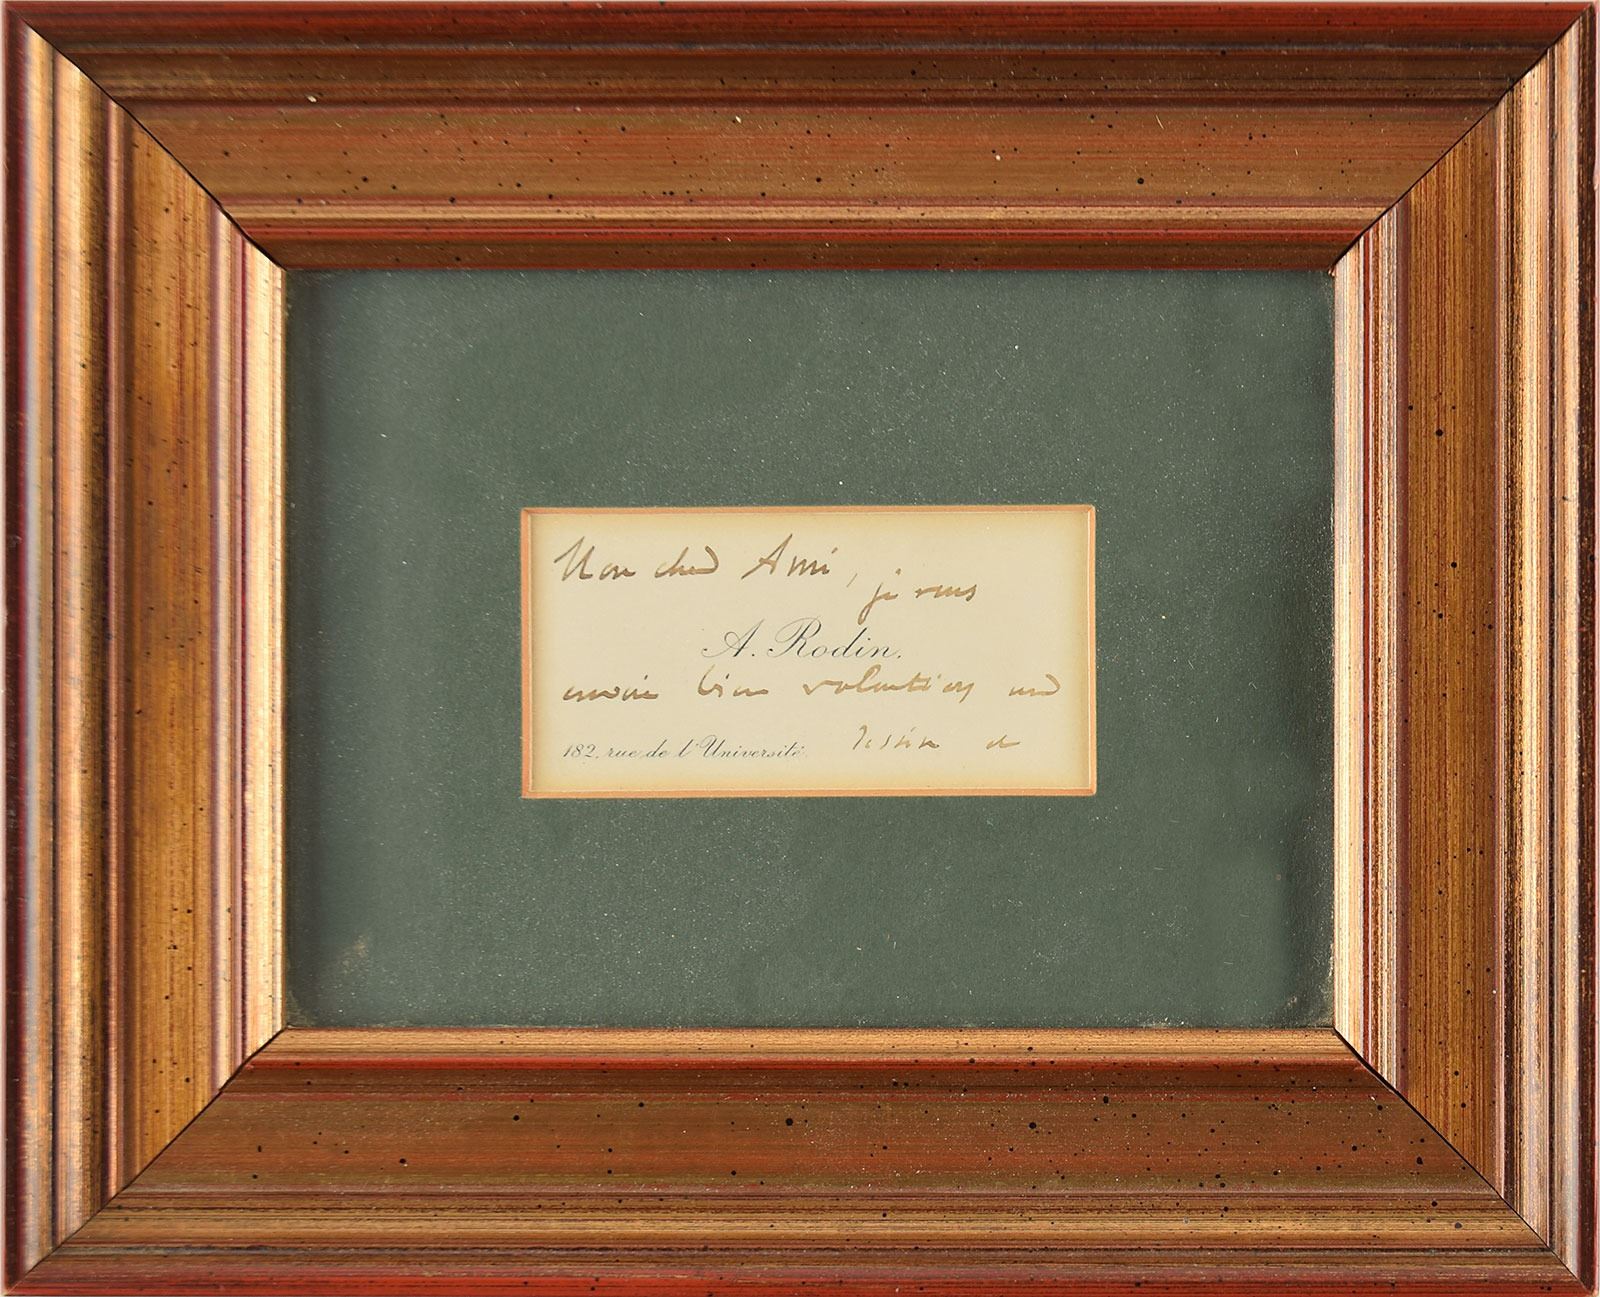 Mon cher Ami,
je vous
A. Rodin.
envoie bien volontiers un
dessin et
182, rue de l'Université.